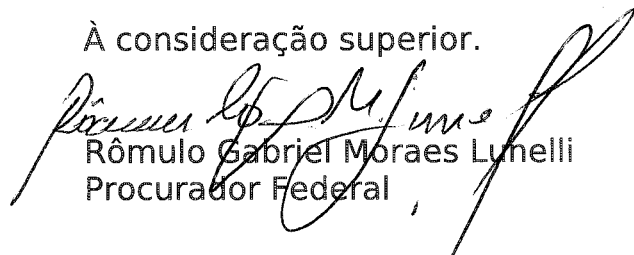 À consideração superior.
Rômulo Gabriel Moraes Lunelli
Procurador Federal